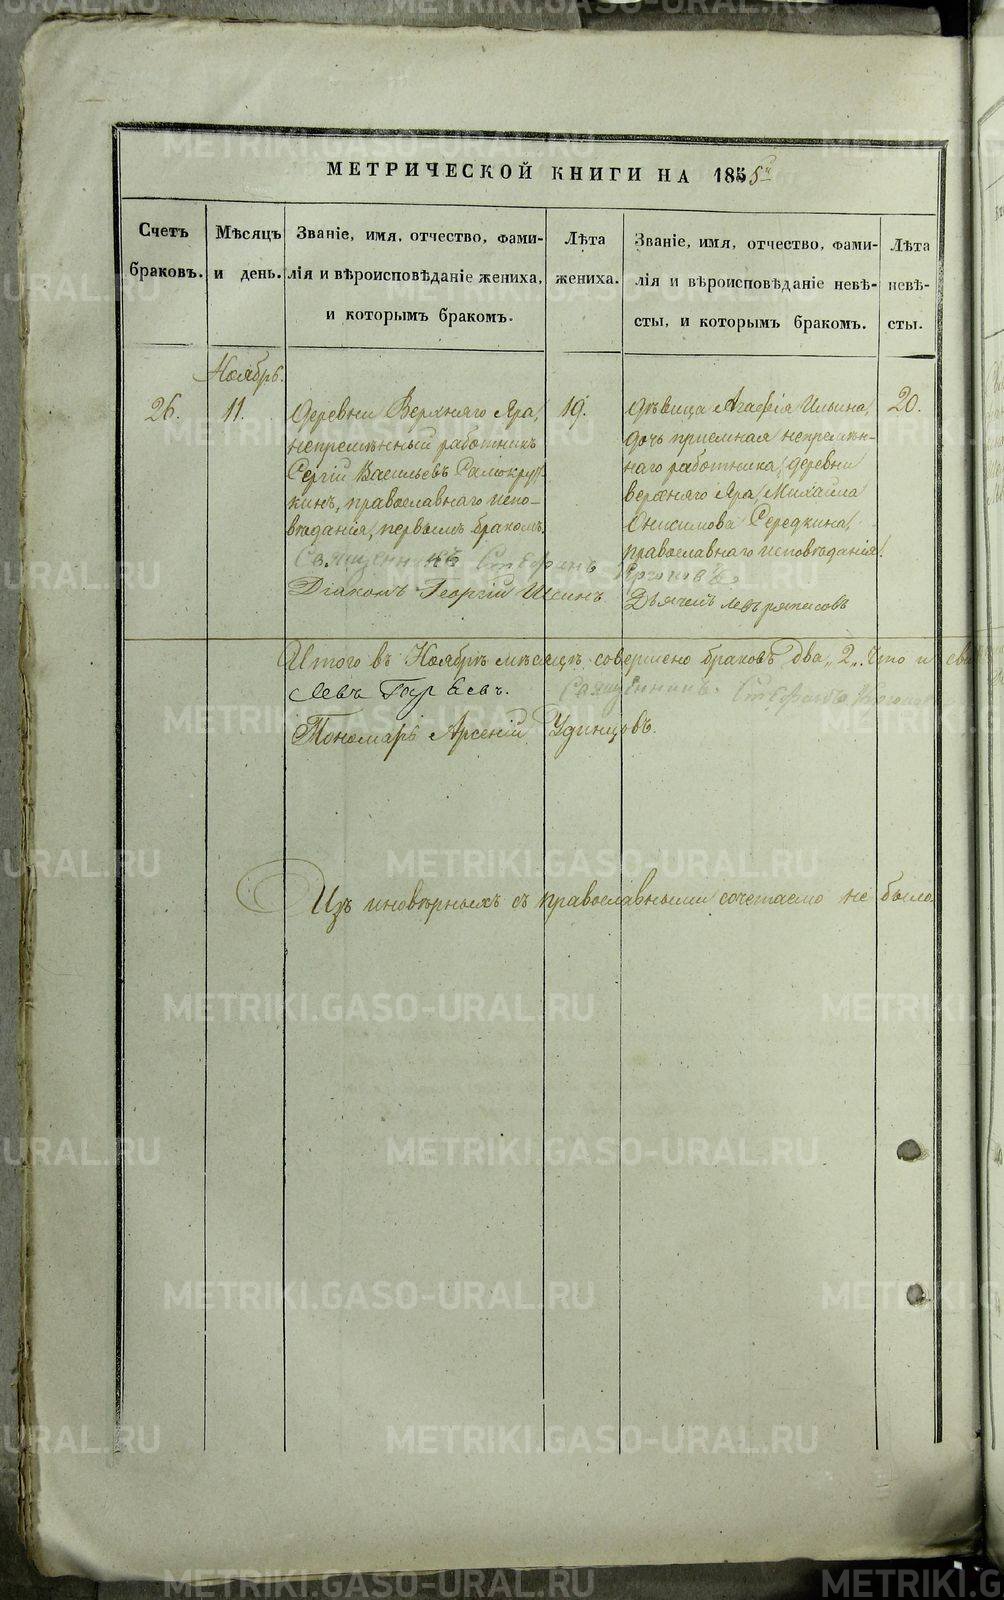 МЕТРИЧЕСКОЙ КНИГИ НА 1855й
Счетъ браковъ.
Мѣсяцъ и день.
Званіе, имя, отчество, фами-
лія и вѣроисповѣданіе жениха,
и которымъ бракомъ.
Лѣта жениха.
Званіе, имя, отчество, фами-
лія и вѣроисповѣданіе невѣ-
сты, и которымъ бракомъ.
Лѣта невѣ-
сты.
Ноябрь.
26.
11.
Деревни Верхняго Яра,
непремѣнный работникъ
Сергій Васильевъ
кинъ, православнаго испо-
вѣданія, первымъ бракомъ.
19.
Дѣвица Агафія Ильина,
дочь приемная непремѣн-
наго работника, деревни
верхняго Яра, Михаила
Онисимова Середкина,
православнаго исповѣданія.
20.
Священникъ Стефанъ
Діаконъ Георгій
Дьячекъ
Итого въ Ноябрѣ мѣсяцѣ совершено браковъ два „2„. Что и
Левъ
Священникъ Стефанъ
Пономарь Арсеній Удинцовъ.
Изъ иновѣрныхъ съ православными сочетаемо не было.
METRIKI.GASO-URAL.RU